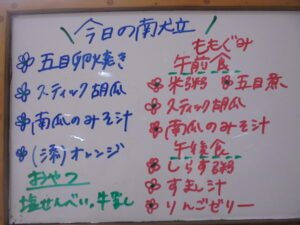 今日の献立
五目卵焼き
スティック胡瓜
南瓜のみそ汁
(添)オレンジ
おやつ
塩せんべい。牛乳
ももぐみ
午前食
米粥 五目煮
スティック胡瓜
南瓜のみそ汁
午後食
しらす粥
すまし汁
りんごゼリー